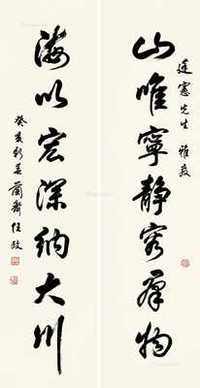 廷憲先生 雅教
山唯寧靜容群物
海以宏深納大川
癸亥新春 蘭齋任政